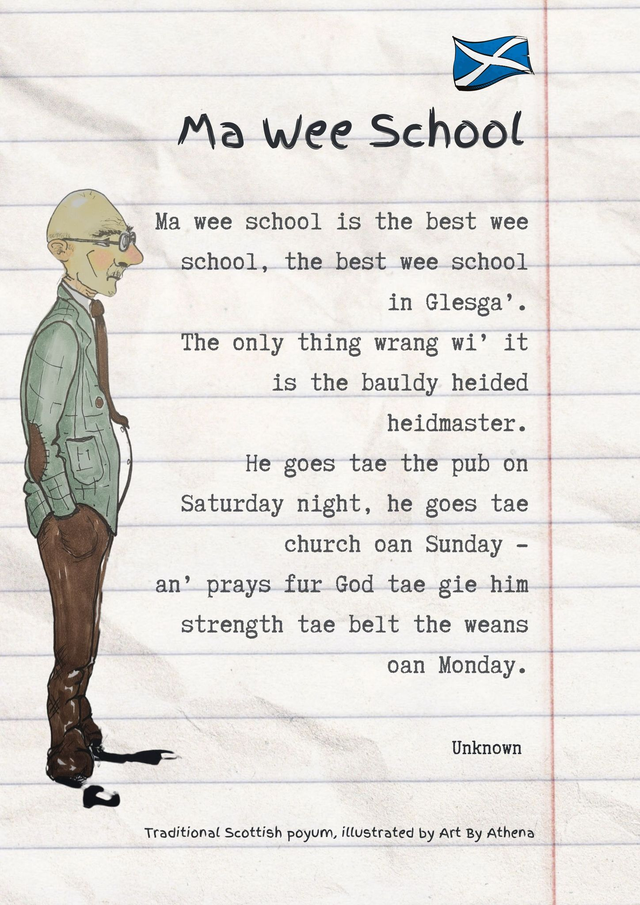 Ma Wee School
Ma wee school is the best wee
school, the best wee school
in Glesga’.
The only thing wrang wi’ it
is the bauldy heided
heidmaster.
He goes tae the pub on
Saturday night, he goes tae
church oan Sunday –
an’ prays fur God tae gie him
strength tae belt the weans
oan Monday.
Unknown
Traditional Scottish poyum, illustrated by Art By Athena